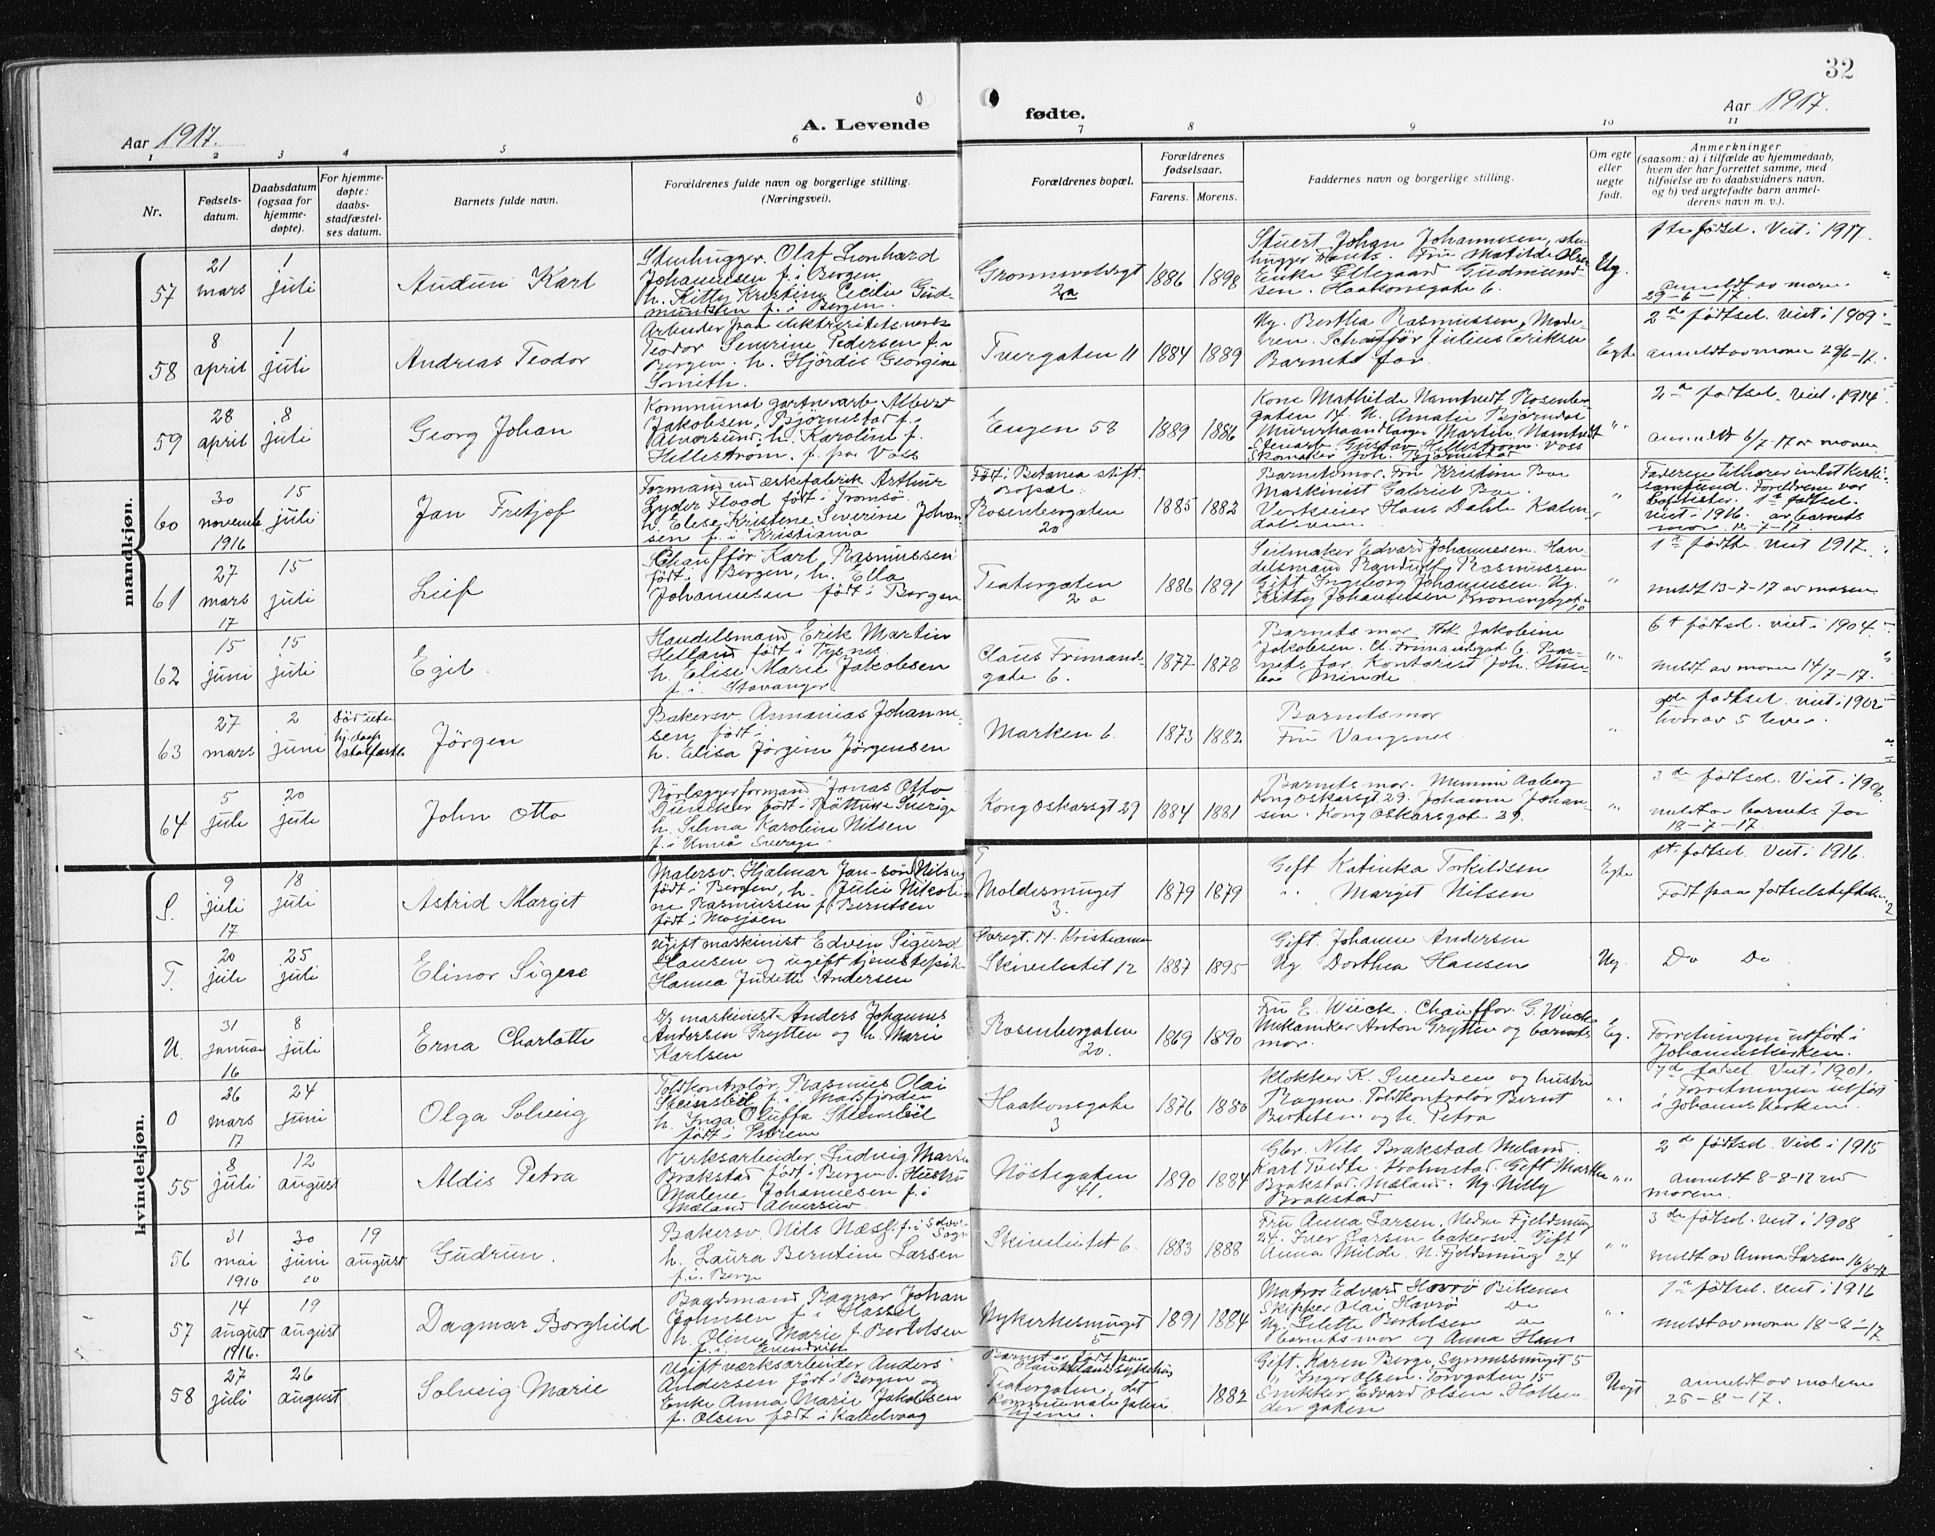 32
Aar 1917.
A. Levende
fødte.
Aar 1917.
1 2 3 4 5 6 7 8 9 10 11
Nr.
Fødsels-
datum.
Daabsdatum
(ogsaa for
hjemme-
døpte).
For hjemme-
døpte:
daabs-
stadfæstel-
ses datum.
Barnets fulde navn.
Forældrenes fulde navn og borgerlige stilling.
(Næringsvei).
Forældrenes bopæl.
Forældrenes
fødselsaar.
Farens. Morens.
Faddernes navn og borgerlige stilling.
Om egte
eller
uegte
født.
Anmerkninger
(saasom: a) i tilfælde av hjemmedaab,
hvem der har forrettet samme, med
tilføielse av to daabsvidners navn.
og b) ved uegtefødte barn anmel-
derens navn m. v.).
mandkjøn.
57
21
mars
1
juli
Audun Karl
Stenhugger Olaf Leonhard
Johannesen f. i Bergen
h. Kitty Kristine Cecilie Gud-
mundsen f. i Bergen.
2a
1886 1898
Stuert Johan Johannesen, sten-
hugger Frants. Fru Matilde Olsen
Enke Ellegaard Gudmund-
sen. Haakonsgate 6.
Ug.
1ste fødsel. Viet i 1917.
anmeldt av moren
29-6-17.
58
8
april
1
juli
Andreas Teodor
Arbeider paa elektricitetsverk
Teodor Severine Pedersen f. i
Bergen h. Hjördis Georgine
Smith.
Tvergaten 11
1884 1889
Ug. Bertha Rasmussen, Mode-
ren. Schaufför Julius Eriksen
Barnets far.
Egte
2de fødsel. viet i 1909
anmeldt av moren 29/6-17.
59
28
april
8
juli
Georg Johan
Kommunal gartnerarb. Albert
Jakobsen, Bjørnestad f. i
Alversund, h. Karoline f.
Hellestrøm. f. paa Voss
Engen 58
1889 1886
Kone Mathilde Namtvedt Rosenber-
gaten 14. U. Amalie Bjørndal
Murerhaandlanger Martin Namtvedt
Stenarb. Gustav Hellestrøm. Voss
Skomaker Joh. Bjørnestad
" "
2a fødsel. viet i 1914
anmeldt 6/7-17 av moren
60
30
november
1916
15
juli
Jan Fretjof
Formand ved æskefabrik Arthur
Lyder Flood født i Tromsø
h. Elise Kristine Severine Johan-
sen f. i Kristiania
Født i Betania stift.
Bopæl:
Rosenbergaten
20
1885 1882
Barnets mor. Fru Kristine Boe
Maskinist Gabriel Boe.
Verkseier Hans Dahle
"
viet i 1916. av barnets
mor 12-7-17.
61
27
mars
17
15
juli
Leif
Chauffør Karl Rasmussen
født i Bergen, h. Ella
Johannesen født i Bergen
Teatergaten
2a
1886 1891
Seilmaker Edvard Johannesen. Han-
delsmand Randulf Rasmussen
Gift Ingeborg Johannesen. Ug.
Kitty Johannesen Kroneng.
"
1ste fødte. viet 1917.
meldt 13-7-17 av moren
62
15
juni
15
juli
Egil.
Handelsmand Erik Martin
Helland født i Tysnes
h. Elise Marie Jakobsen
f. i Stavanger
Claus Frimand-
gate 6.
1877 1878
Barnets mor. Frk Jakobine
Jakobsen. Cl. Frimandsgt 6. Bar-
nets far. Kontorist Joh.
Minde
"
6t fødsel. viet i 1904.
meldt av moren 14/7-17.
63
27
mars
2
juni
Død uten
hj. daap
stadfæstelse
Jörgen
Bakersv. Annanias Johanne-
sen født i
h. Elisa Jörgine Jörgensen
Marken 6.
1873 1882
Barnets mor
Fru Vangsnes
"
9de fødsel. viet i 1902
hvorav 5 lever.
64
5
juli
20
juli
John Otto
Rörlæggerformand Jonas Otto
Duncker født i Rättvik Sverige
h. Selma Karoline Nilsen
f. i Umeå Sverige.
Kong Oskarsgt 29
1884 1881
Barnets mor. Mimmi Aaberg
Kong Oskarsgt 29. Johann Johan-
sen. Kong Oskarsgate 39.
"
3de fødsel. Viet i 1906
meldt av barnets far
18-7-17.
kvindekjøn.
S.
9
juli
17
18
juli
Astrid Margit
Malersv. Hjalmar Jan-sön Nilsen
født i Bergen, h. Julie Nikoli-
ne Rasmussen f. Berntsen
født i Mosjøen
Moldesmuget
3.
1879 1879
Gift Katinka Torkildsen
" Margit Nilsen
Egte
1st. fødsel. Viet i 1916.
Født paa fødselsstiftelsen
T.
20
juli
25
juli
Elinor Signe
Ugift maskinist Edvin Sigurd
Hansen og ugift tjenestepike
Hanna Judette Andersen
Torvgt. 14. Kristiania
Skivelistet 12
1887 1895
Gift. Johanne Andersen
Ug. Dorthea Hansen
Ug.
Do Do
U.
31
januar
16
8
juli
Erna Charlotte
maskinist Anders Johannes
Andersen Grytten og h. Marie
Karlsen
Rosenbergaten
20.
1869 1890
Fru E. Wiick. Chauffør. G. Wiick
Mekaniker Anton Grytten og barnets
mor.
Eg.
Forretningen utført i
Johanneskirken.
O
26
mars
17
24
juni
Olga Solveig
Toldkontrolör Rasmus Olai
Steinsbøl f. i Masfjorden
h. Inga Oluffa Steinsbøl
født i
Haakonsgate
3
1876 1880
Klokker K. Svendsen og hustru
Ragna. Toldkontrolör Bernt
Bertelsen og h. Petra
" "
7de fødsel. Viet i 1901.
Forretningen utført
i Johanneskirken.
55
8
juli
12
august
Aldis Petra
Verksarbeider Ludvig Martin
Brakstad født i Bergen. Hustru
Malene Johannesen f. i
Mæland Alversund.
Nöstegaten
41.
1890 1884
Gbr. Nils Brakstad Meland.
Karl Tvedte. Holmstad. Gift Marthe
Brakstad. Mæland. Ug. Nilly
Brakstad
" "
2de fødsel. Viet i 1915
Anmeldt 8-8-17 ved
moren.
56
31
mai
1910
30
juni
10
19
august
Gudrun.
Bakersv. Nils Næss f. i Solvorn Sogn
h. Laura Berntine Larsen
f. i Berge
Skivelistet 6.
1883 1888
Fru Anna Larsen. Nedre Fjeldsmug
24. Iver Larsen bakersv. Gift
Anna Milde. N. Fjeldsmug 24
" "
3de fødsel. viet i 1908
meldt av Anna Larsen 16/8-17
57
14
august
1916.
19
august
Dagmar Borghild
Baadsmand Ragnar Johan
Johnsen f. i Hassel
h. Oline Marie f. Bertelsen
f. i Evendvik
Nykirkesmuget
5
1891 1884
Matros Edvard Havrö Bikene
Skipper Olai Havrö Do
Ug. Lilette Bertelsen Do
barnets mor og Anna Hans
" "
1ste fødsel. viet i 1916
meldt av moren 18-8-17.
58
27
juli
26
august
Solveig Marie
Ugift værksarbeider Anders
Andersen født i Bergen og
Enke Anna Marie Jakobsen
f. Olsen født i Kallevaag
Barnet er født paa
Haukelands sykehus
Teatergaten, det
Kommunale
hjem.
1882
Gift. Karen Berge, Synnesmuget 5
" Inger Olsen. Torvgaten 15
Snikker Edvard Olsen. Hollen-
der gaten
Uegt
anmeldt av moren
25-8-17.